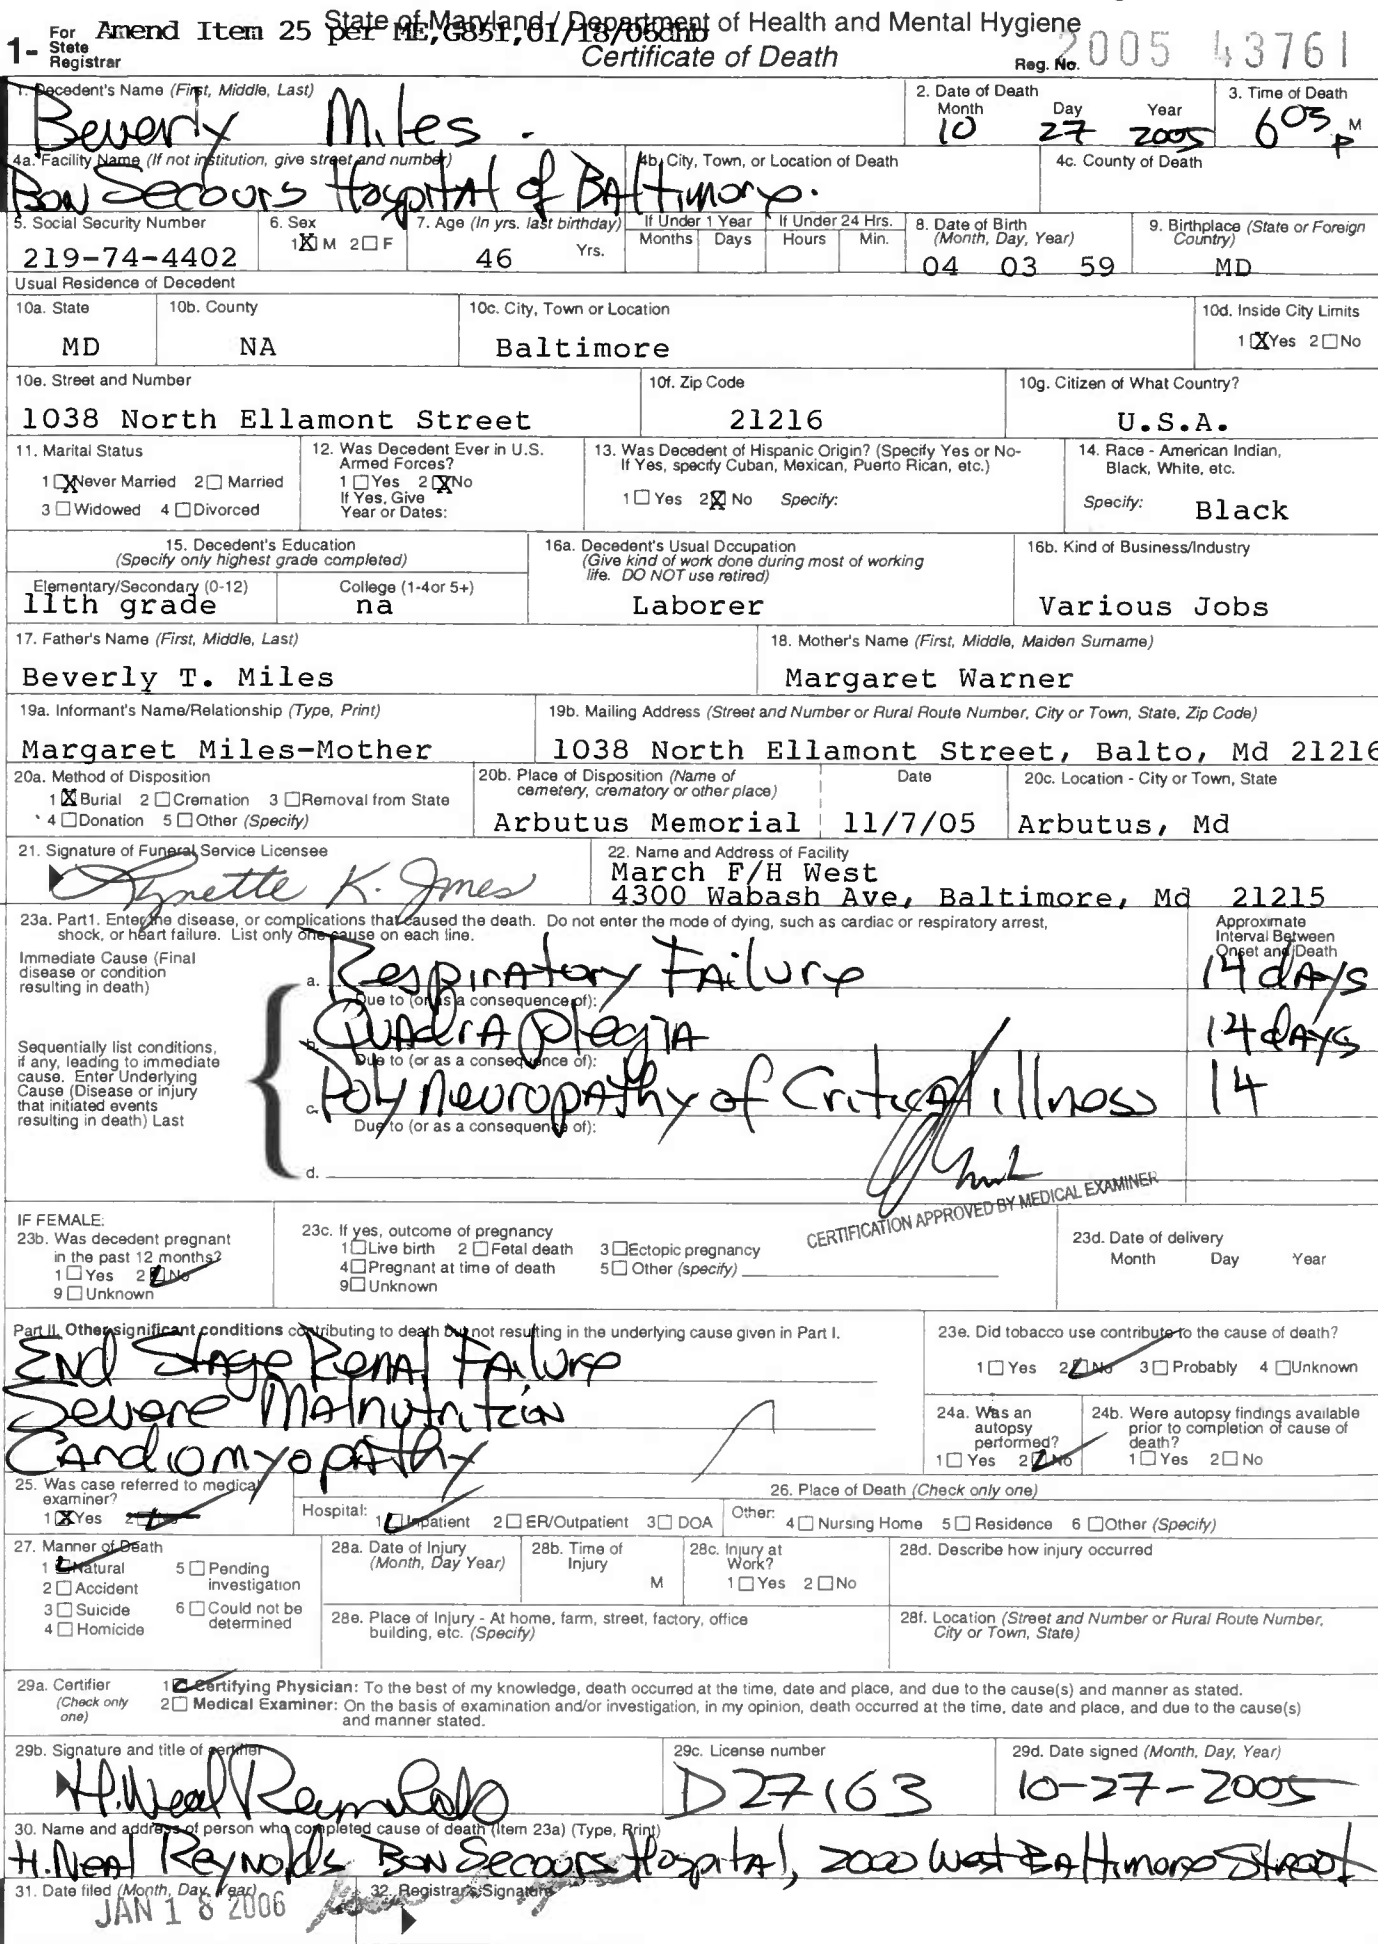 For State Registrar
1-
Amend Item 25 per ME,G851,01/18/06dhb
State of Maryland / Department of Health and Mental Hygiene
Certificate of Death
Reg. No. 2005 43761
1. Decedent's Name (First, Middle, Last)
Beverly Miles.
2. Date of Death
Month Day Year
10 27 2005
3. Time of Death
603 P M
4a. Facility Name (If not institution, give street and number)
4b. City, Town, or Location of Death
4c. County of Death
Bon Secours Hospital of Baltimore.
5. Social Security Number
219-74-4402
6. Sex
1☒M 2☐F
7. Age (In yrs. last birthday)
46 Yrs.
If Under 1 Year
Months Days
If Under 24 Hrs.
Hours Min.
8. Date of Birth
(Month, Day, Year)
04 03 59
9. Birthplace (State or Foreign
Country)
MD
Usual Residence of Decedent
10a. State
MD
10b. County
NA
10c. City, Town or Location
Baltimore
10d. Inside City Limits
1☒Yes 2☐No
10e. Street and Number
1038 North Ellamont Street
10f. Zip Code
21216
10g. Citizen of What Country?
U.S.A.
11. Marital Status
1☒Never Married 2☐Married
3☐Widowed 4☐Divorced
12. Was Decedent Ever in U.S.
Armed Forces?
1☐Yes 2☒No
If Yes, Give
Year or Dates:
13. Was Decedent of Hispanic Origin? (Specify Yes or No-
If Yes, specify Cuban, Mexican, Puerto Rican, etc.)
1☐Yes 2☒No Specify:
14. Race - American Indian,
Black, White, etc.
Specify: Black
15. Decedent's Education
(Specify only highest grade completed)
Elementary/Secondary (0-12)
11th grade
College (1-4or 5+)
na
16a. Decedent's Usual Occupation
(Give kind of work done during most of working
life. DO NOT use retired)
Laborer
16b. Kind of Business/Industry
Various Jobs
17. Father's Name (First, Middle, Last)
Beverly T. Miles
18. Mother's Name (First, Middle, Maiden Surname)
Margaret Warner
19a. Informant's Name/Relationship (Type, Print)
Margaret Miles-Mother
19b. Mailing Address (Street and Number or Rural Route Number, City or Town, State, Zip Code)
1038 North Ellamont Street, Balto, Md 21216
20a. Method of Disposition
1☒Burial 2☐Cremation 3☐Removal from State
4☐Donation 5☐Other (Specify)
20b. Place of Disposition (Name of
cemetery, crematory or other place)
Arbutus Memorial
Date
11/7/05
20c. Location - City or Town, State
Arbutus, Md
21. Signature of Funeral Service Licensee
Lynette K. Jones
22. Name and Address of Facility
March F/H West
4300 Wabash Ave, Baltimore, Md 21215
23a. Part1. Enter the disease, or complications that caused the death. Do not enter the mode of dying, such as cardiac or respiratory arrest,
shock, or heart failure. List only one cause on each line.
Approximate
Interval Between
Onset and Death
Immediate Cause (Final
disease or condition
resulting in death)
a. Respiratory Failure 14 days
Due to (or as a consequence of):
b. Quadraplegia 14 days
Sequentially list conditions,
if any, leading to immediate
cause. Enter Underlying
Cause (Disease or injury
that initiated events
resulting in death) Last
Due to (or as a consequence of):
c. Poly Neuropathy of Critical illness 14
Due to (or as a consequence of):
d.
CERTIFICATION APPROVED BY MEDICAL EXAMINER
IF FEMALE:
23b. Was decedent pregnant
in the past 12 months?
1☐Yes 2☑No
9☐Unknown
23c. If yes, outcome of pregnancy
1☐Live birth 2☐Fetal death 3☐Ectopic pregnancy
4☐Pregnant at time of death 5☐Other (specify)
9☐Unknown
23d. Date of delivery
Month Day Year
Part II. Other significant conditions contributing to death but not resulting in the underlying cause given in Part I.
End Stage Renal Failure
Severe Malnutrition
Cardiomyopathy
23e. Did tobacco use contribute to the cause of death?
1☐Yes 2☑No 3☐Probably 4☐Unknown
24a. Was an
autopsy
performed?
1☐Yes 2☑No
24b. Were autopsy findings available
prior to completion of cause of
death?
1☐Yes 2☐No
25. Was case referred to medical
examiner?
1☒Yes 2☐No
26. Place of Death (Check only one)
Hospital: 1☑Inpatient 2☐ER/Outpatient 3☐DOA Other: 4☐Nursing Home 5☐Residence 6☐Other (Specify)
27. Manner of Death
1☑Natural 5☐Pending
investigation
2☐Accident
3☐Suicide 6☐Could not be
determined
4☐Homicide
28a. Date of Injury
(Month, Day Year)
28b. Time of
Injury
M
28c. Injury at
Work?
1☐Yes 2☐No
28d. Describe how injury occurred
28e. Place of Injury - At home, farm, street, factory, office
building, etc. (Specify)
28f. Location (Street and Number or Rural Route Number,
City or Town, State)
29a. Certifier
(Check only
one)
1☑Certifying Physician: To the best of my knowledge, death occurred at the time, date and place, and due to the cause(s) and manner as stated.
2☐Medical Examiner: On the basis of examination and/or investigation, in my opinion, death occurred at the time, date and place, and due to the cause(s)
and manner stated.
29b. Signature and title of certifier
H. Neal Reynolds
29c. License number
D27163
29d. Date signed (Month, Day, Year)
10-27-2005
30. Name and address of person who completed cause of death (Item 23a) (Type, Print)
H. Neal Reynolds Bon Secours Hospital, 2000 West Baltimore Street
31. Date filed (Month, Day, Year)
JAN 18 2006
32. Registrar's Signature